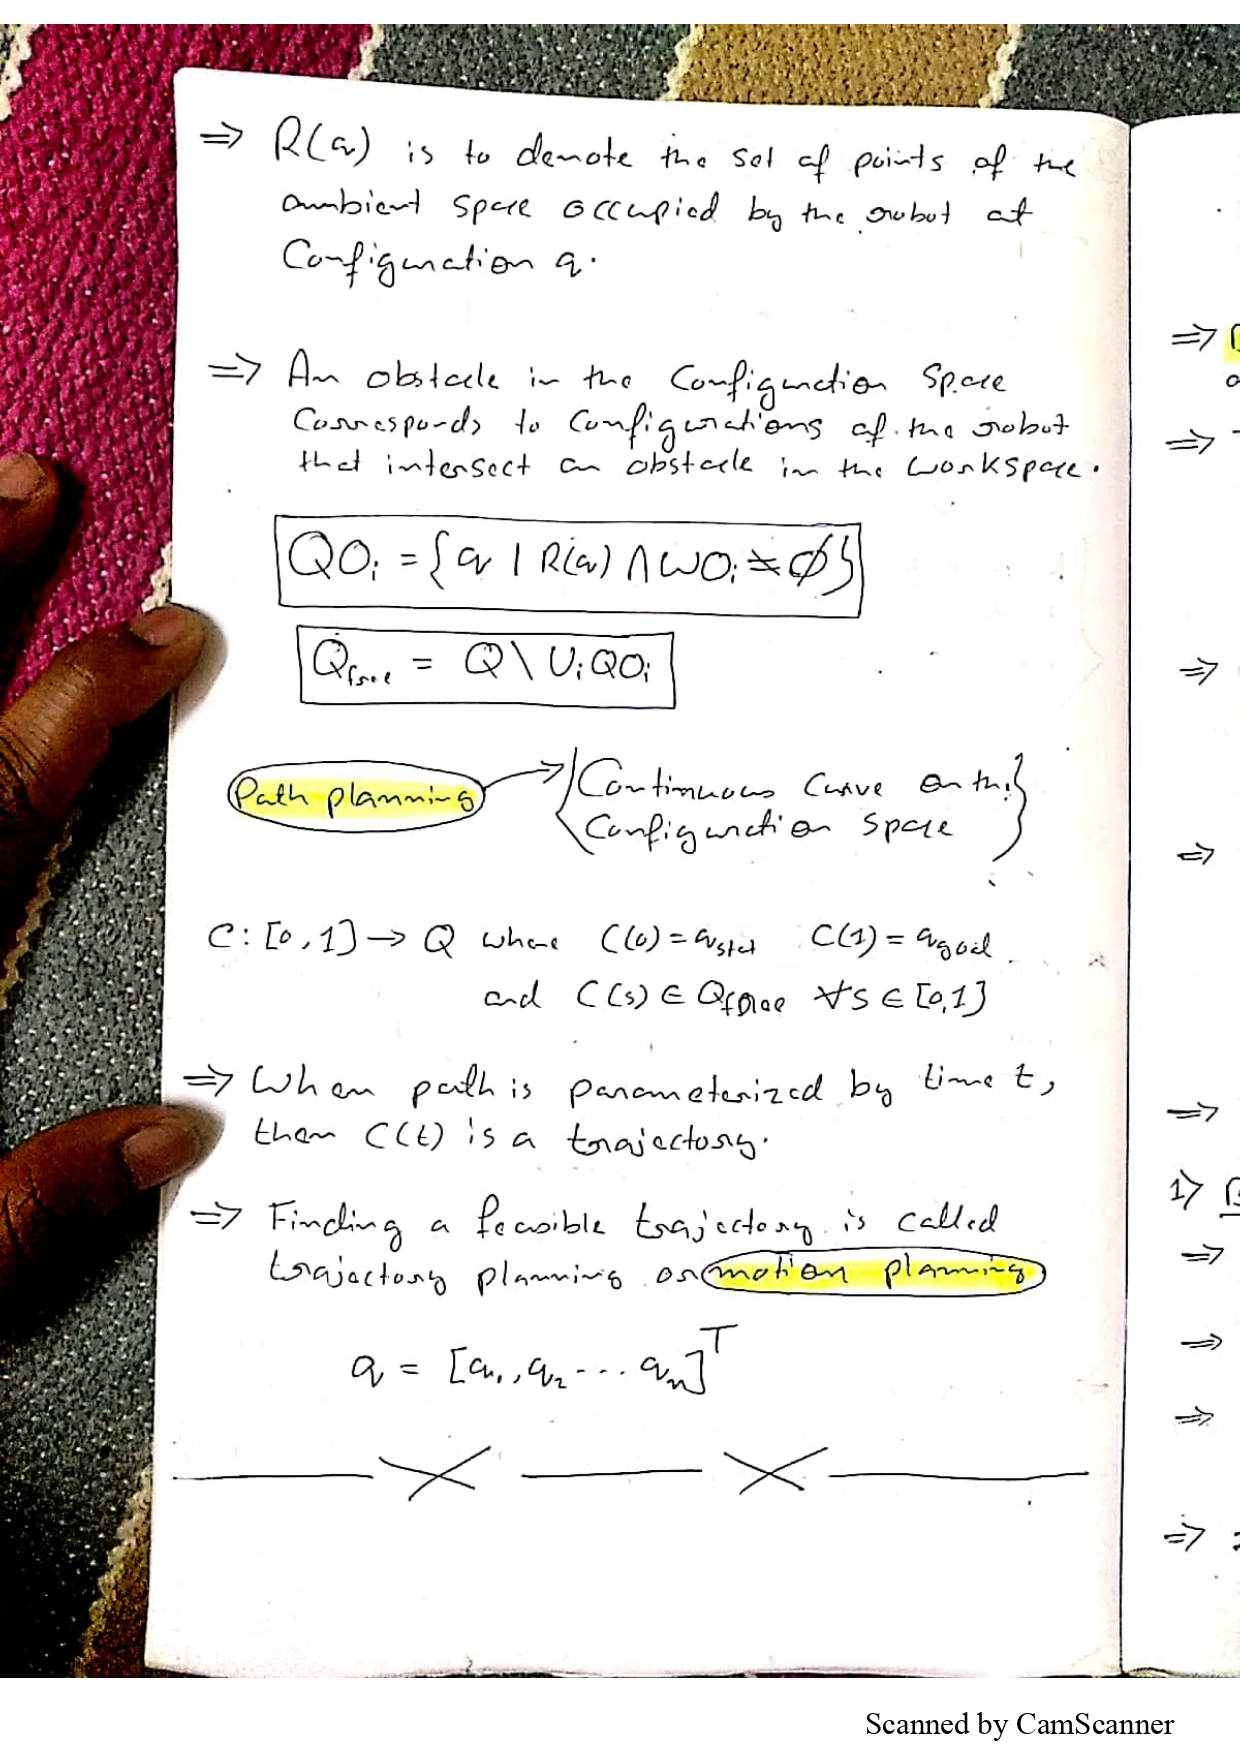 ⇒ R(q) is to denote the set of points of the
ambient space occupied by the robot at
Configuration q.
⇒ An obstacle in the Configuration Space
Corresponds to Configurations of the robot
that intersect an obstacle in the workspace.
QOᵢ = {q | R(q) ∩ WOᵢ ≠ ∅}
Qfree = Q \ ∪ᵢ QOᵢ
Path planning → {Continuous Curve on the
Configuration Space}
C : [0, 1] → Q where C(0) = qstart C(1) = qgoal
and C(s) ∈ Qfree ∀s ∈ [0,1]
⇒ When path is parameterized by time t,
then C(t) is a trajectory.
⇒ Finding a feasible trajectory is called
trajectory planning or motion planning
q = [q₁, q₂ ... qₙ]ᵀ
⇒
⇒
⇒
⇒
⇒
1)
⇒
⇒
⇒
⇒
Scanned by CamScanner